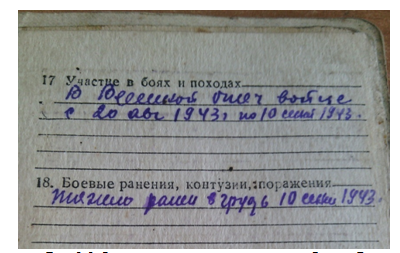 17 Участие в боях и походах
В Великой отеч войне
с 20 авг 1943г по 10 сент 1943.
18. Боевые ранения, контузии, поражения
тяжело ранен в грудь 10 сент 1943.